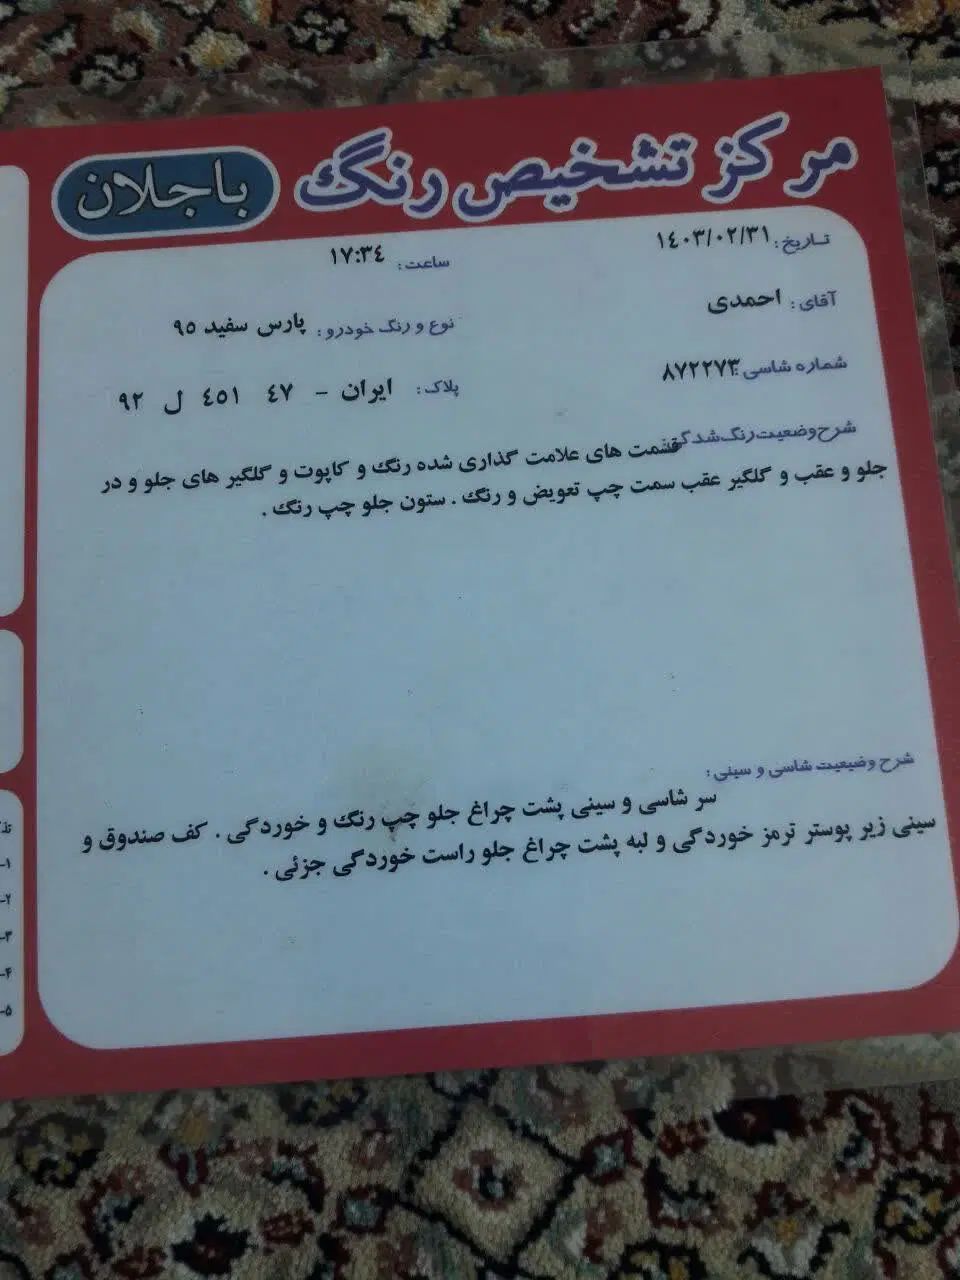 مرکز تشخیص رنگ باجلان
تاریخ: ۱٤۰۳/۰۲/۳۱ ساعت: ۱۷:۳٤
آقای: احمدی نوع و رنگ خودرو: پارس سفید ۹۵
شماره شاسی: ۸۷۲۲۷۳ پلاک: ایران - ٤۷ ٤۵۱ ل ۹۲
شرح وضعیت رنگ شدگی: قشمت های علامت گذاری شده رنگ و کاپوت و گلگیر های جلو و در
جلو و عقب و گلگیر عقب سمت چپ تعویض و رنگ . ستون جلو چپ رنگ .
شرح وضیعیت شاسی و سینی:
سر شاسی و سینی پشت چراغ جلو چپ رنگ و خوردگی . کف صندوق و
سینی زیر پوستر ترمز خوردگی و لبه پشت چراغ جلو راست خوردگی جزئی .
۱-
۲-
۳-
۴-
۵-